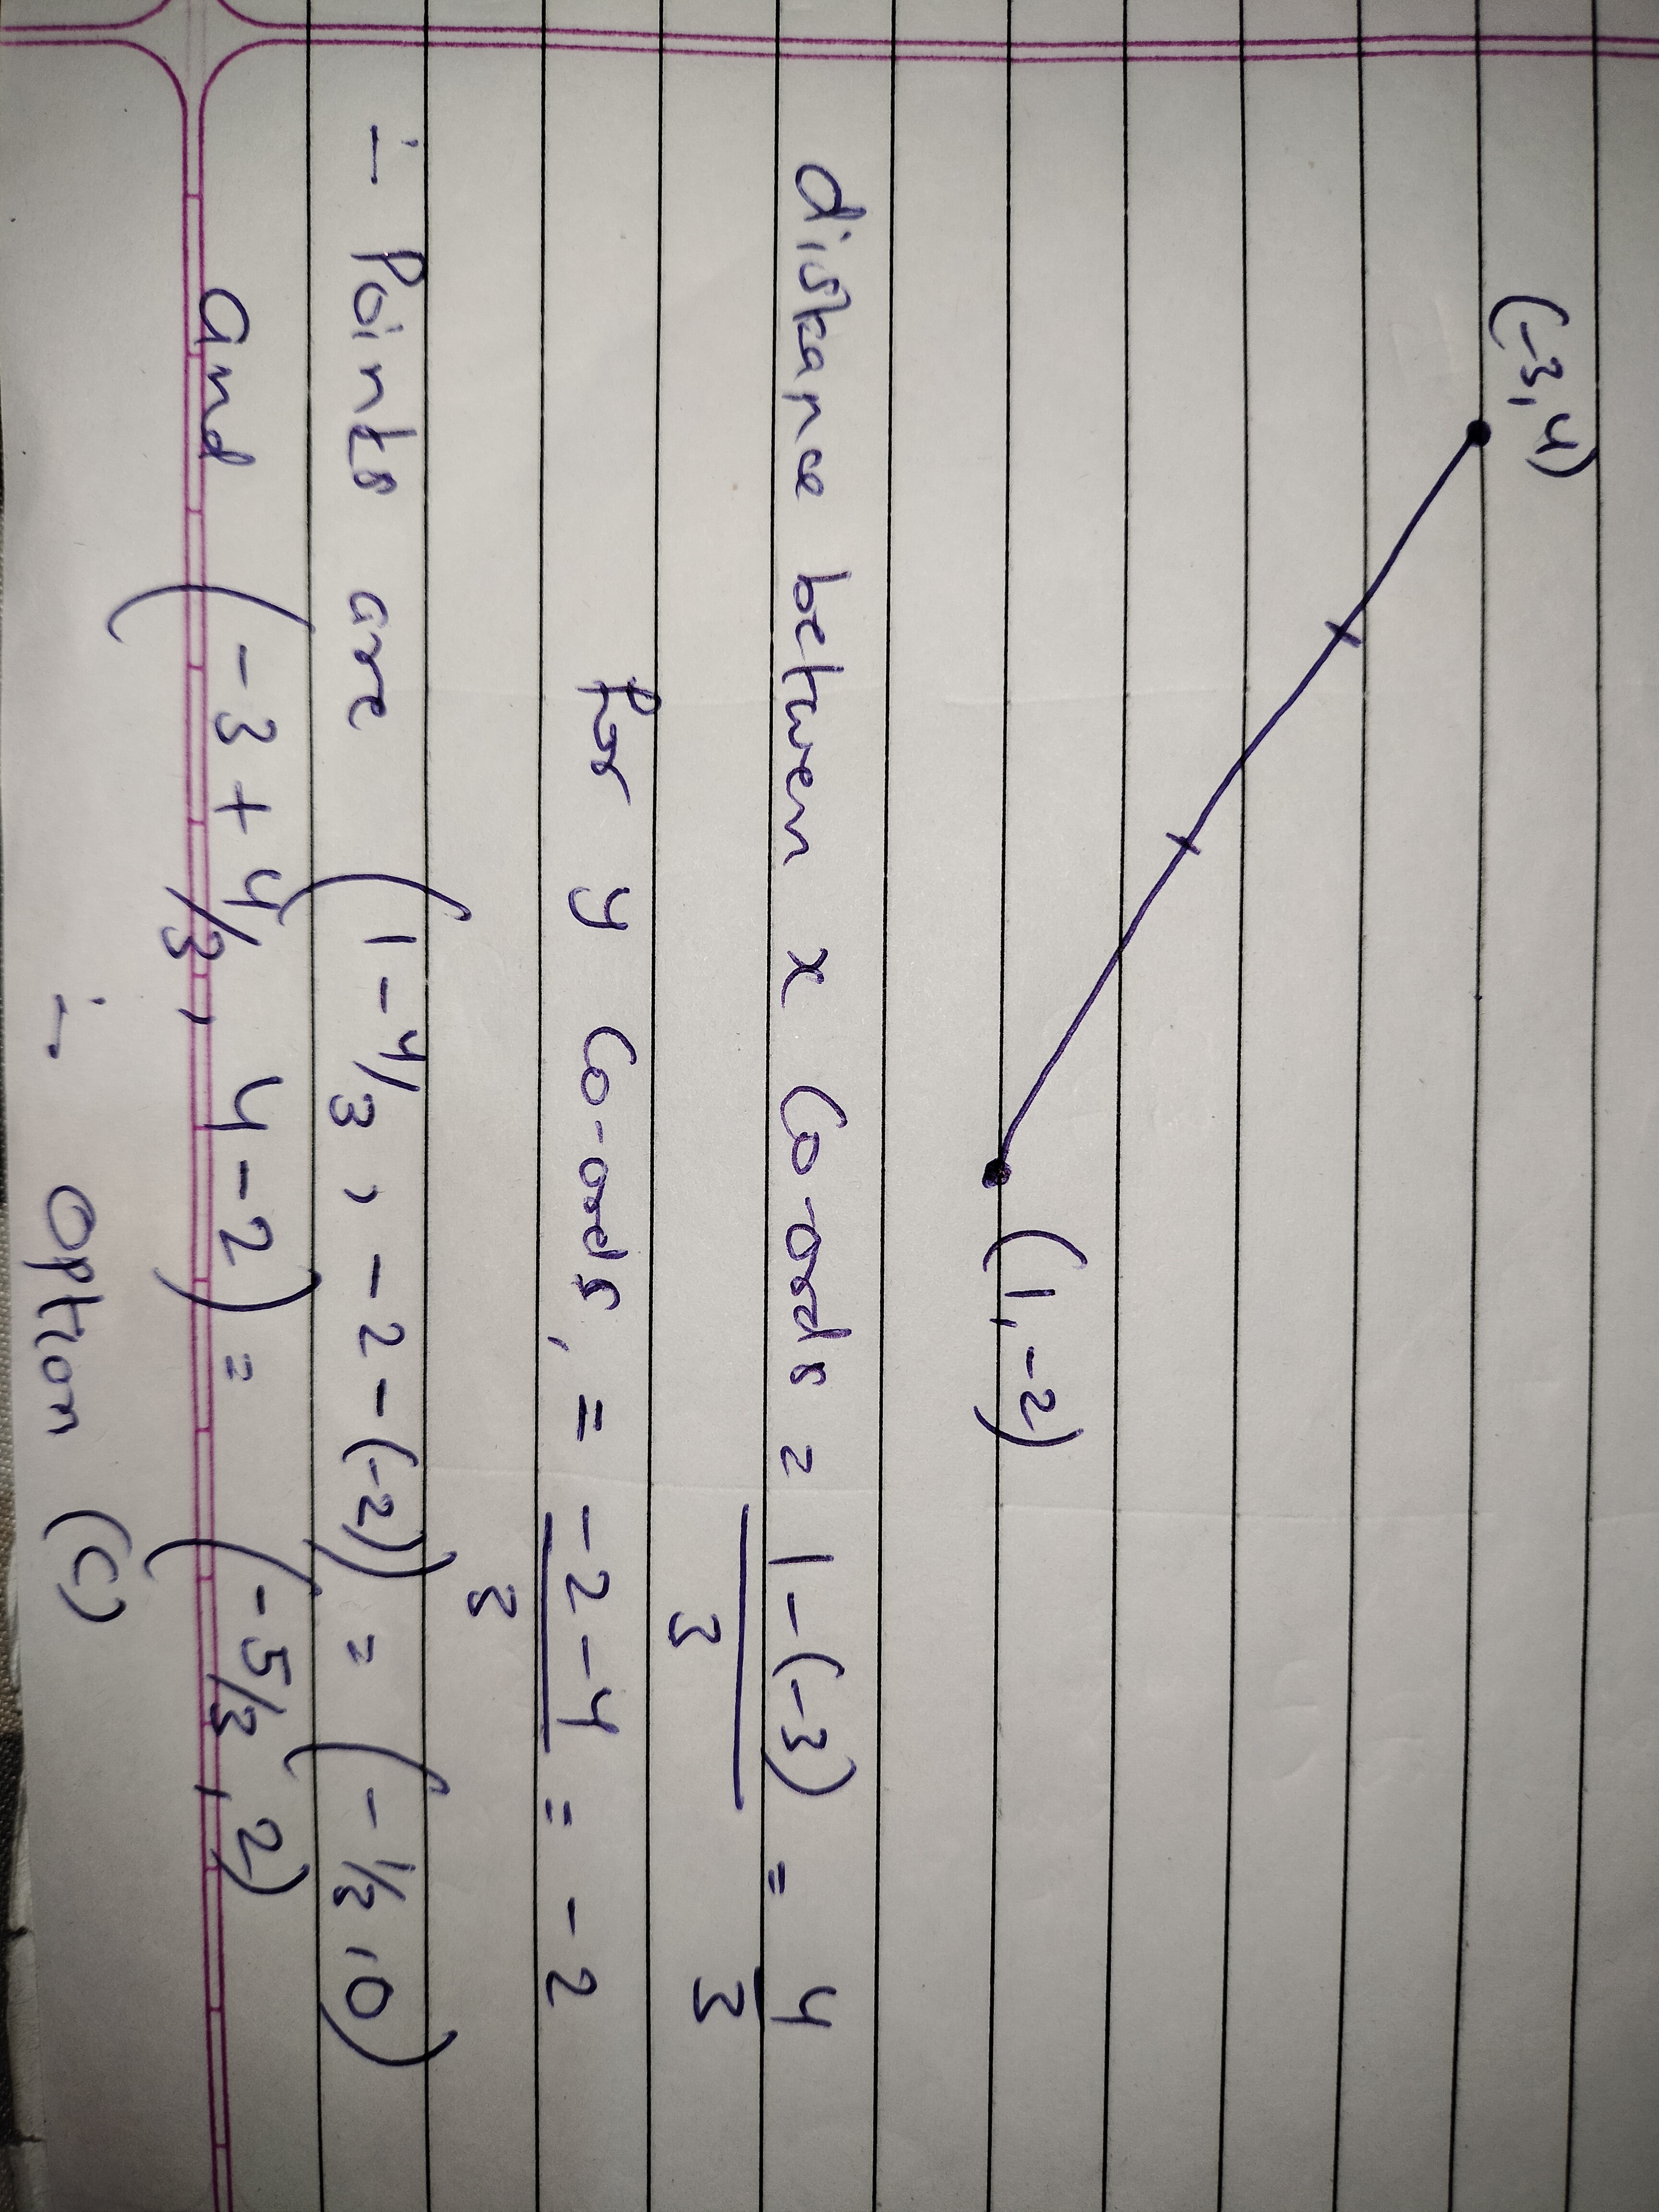 (-3,4)
(1,-2)
distance between x Co-ords = 1-(-3)/3 = 4/3
for y Co-ords, = -2-4/3 = -2
∴ Points are (1-4/3, -2-(-2)) = (-1/3, 0)
and (-3+4/3, 4-2) = (-5/3, 2)
∴ option (C)